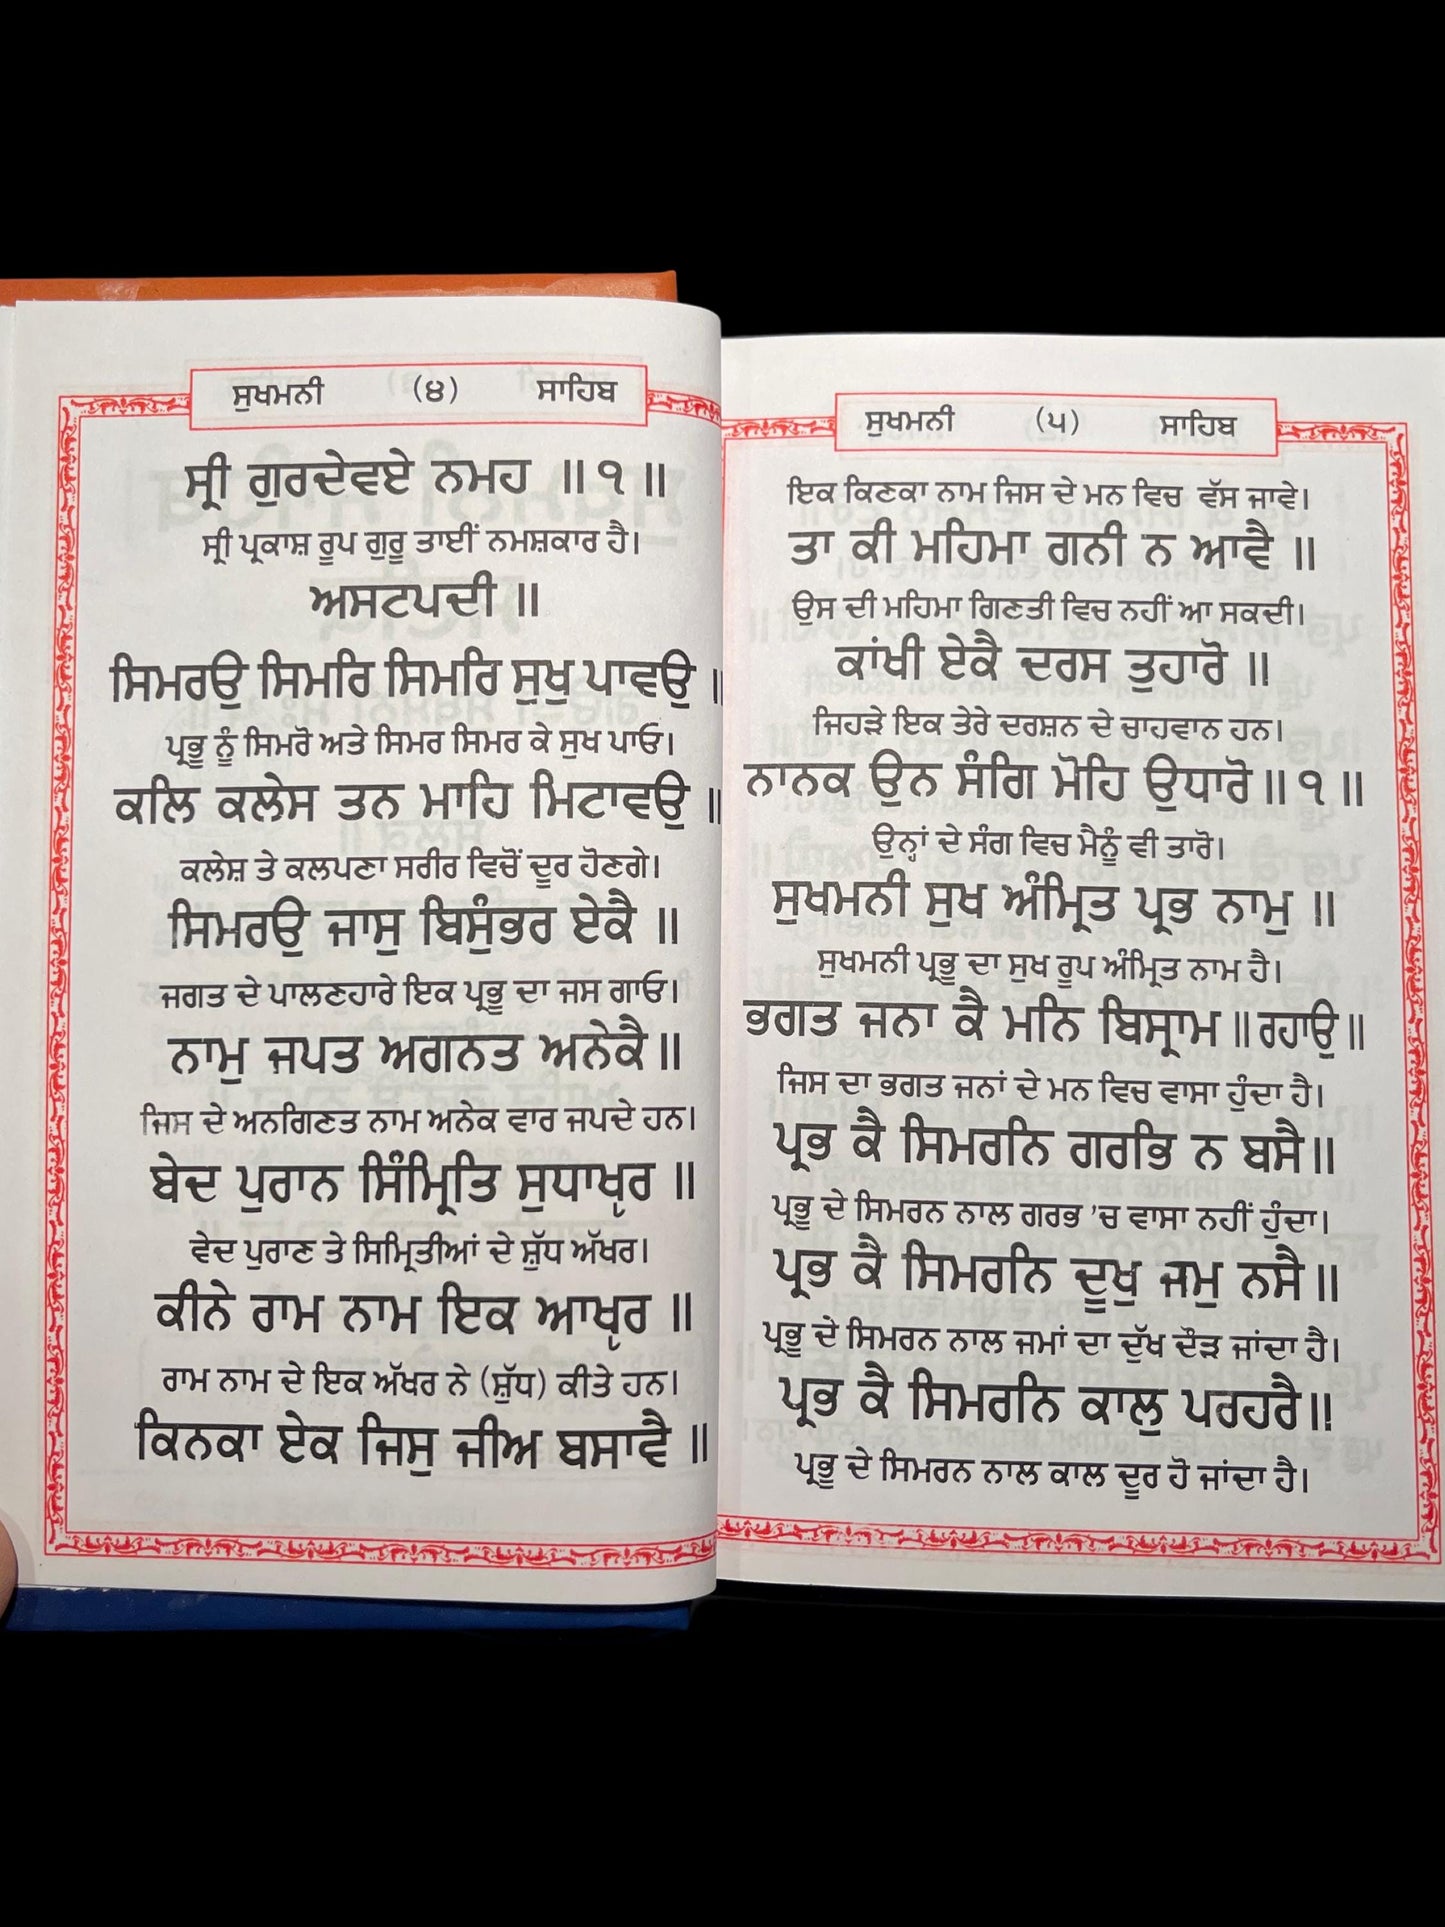 ਸੁਖਮਨੀ (੪) ਸਾਹਿਬ
ਸ੍ਰੀ ਗੁਰਦੇਵਏ ਨਮਹ ॥੧॥
ਸ੍ਰੀ ਪ੍ਰਕਾਸ਼ ਰੂਪ ਗੁਰੂ ਤਾਈਂ ਨਮਸ਼ਕਾਰ ਹੈ।
ਅਸਟਪਦੀ ॥
ਸਿਮਰਉ ਸਿਮਰਿ ਸਿਮਰਿ ਸੁਖੁ ਪਾਵਉ ॥
ਪ੍ਰਭੂ ਨੂੰ ਸਿਮਰੋ ਅਤੇ ਸਿਮਰ ਸਿਮਰ ਕੇ ਸੁਖ ਪਾਓ।
ਕਲਿ ਕਲੇਸ ਤਨ ਮਾਹਿ ਮਿਟਾਵਉ ॥
ਕਲੇਸ਼ ਤੇ ਕਲਪਣਾ ਸਰੀਰ ਵਿਚੋਂ ਦੂਰ ਹੋਣਗੇ।
ਸਿਮਰਉ ਜਾਸੁ ਬਿਸੁੰਭਰ ਏਕੈ ॥
ਜਗਤ ਦੇ ਪਾਲਣਹਾਰੇ ਇਕ ਪ੍ਰਭੂ ਦਾ ਜਸ ਗਾਓ।
ਨਾਮੁ ਜਪਤ ਅਗਨਤ ਅਨੇਕੈ॥
ਜਿਸ ਦੇ ਅਨਗਿਣਤ ਨਾਮ ਅਨੇਕ ਵਾਰ ਜਪਦੇ ਹਨ।
ਬੇਦ ਪੁਰਾਨ ਸਿੰਮ੍ਰਿਤਿ ਸੁਧਾਖ੍ਯਰ ॥
ਵੇਦ ਪੁਰਾਣ ਤੇ ਸਿਮ੍ਰਿਤੀਆਂ ਦੇ ਸ਼ੁੱਧ ਅੱਖਰ।
ਕੀਨੇ ਰਾਮ ਨਾਮ ਇਕ ਆਖ੍ਯਰ ॥
ਰਾਮ ਨਾਮ ਦੇ ਇਕ ਅੱਖਰ ਨੇ (ਸ਼ੁੱਧ) ਕੀਤੇ ਹਨ।
ਕਿਨਕਾ ਏਕ ਜਿਸੁ ਜੀਅ ਬਸਾਵੈ ॥
ਸੁਖਮਨੀ (੫) ਸਾਹਿਬ
ਇਕ ਕਿਣਕਾ ਨਾਮ ਜਿਸ ਦੇ ਮਨ ਵਿਚ ਵੱਸ ਜਾਵੇ।
ਤਾ ਕੀ ਮਹਿਮਾ ਗਨੀ ਨ ਆਵੈ ॥
ਉਸ ਦੀ ਮਹਿਮਾ ਗਿਣਤੀ ਵਿਚ ਨਹੀਂ ਆ ਸਕਦੀ।
ਕਾਂਖੀ ਏਕੈ ਦਰਸ ਤੁਹਾਰੋ ॥
ਜਿਹੜੇ ਇਕ ਤੇਰੇ ਦਰਸ਼ਨ ਦੇ ਚਾਹਵਾਨ ਹਨ।
ਨਾਨਕ ਉਨ ਸੰਗਿ ਮੋਹਿ ਉਧਾਰੋ॥੧॥
ਉਨ੍ਹਾਂ ਦੇ ਸੰਗ ਵਿਚ ਮੈਨੂੰ ਵੀ ਤਾਰੋ।
ਸੁਖਮਨੀ ਸੁਖ ਅੰਮ੍ਰਿਤ ਪ੍ਰਭ ਨਾਮੁ ॥
ਸੁਖਮਨੀ ਪ੍ਰਭੂ ਦਾ ਸੁਖ ਰੂਪ ਅੰਮ੍ਰਿਤ ਨਾਮ ਹੈ।
ਭਗਤ ਜਨਾ ਕੈ ਮਨਿ ਬਿਸ੍ਰਾਮ॥ਰਹਾਉ॥
ਜਿਸ ਦਾ ਭਗਤ ਜਨਾਂ ਦੇ ਮਨ ਵਿਚ ਵਾਸਾ ਹੁੰਦਾ ਹੈ।
ਪ੍ਰਭ ਕੈ ਸਿਮਰਨਿ ਗਰਭਿ ਨ ਬਸੈ॥
ਪ੍ਰਭੂ ਦੇ ਸਿਮਰਨ ਨਾਲ ਗਰਭ 'ਚ ਵਾਸਾ ਨਹੀਂ ਹੁੰਦਾ।
ਪ੍ਰਭ ਕੈ ਸਿਮਰਨਿ ਦੂਖੁ ਜਮੁ ਨਸੈ॥
ਪ੍ਰਭੂ ਦੇ ਸਿਮਰਨ ਨਾਲ ਜਮਾਂ ਦਾ ਦੁੱਖ ਦੌੜ ਜਾਂਦਾ ਹੈ।
ਪ੍ਰਭ ਕੈ ਸਿਮਰਨਿ ਕਾਲੁ ਪਰਹਰੈ॥
ਪ੍ਰਭੂ ਦੇ ਸਿਮਰਨ ਨਾਲ ਕਾਲ ਦੂਰ ਹੋ ਜਾਂਦਾ ਹੈ।